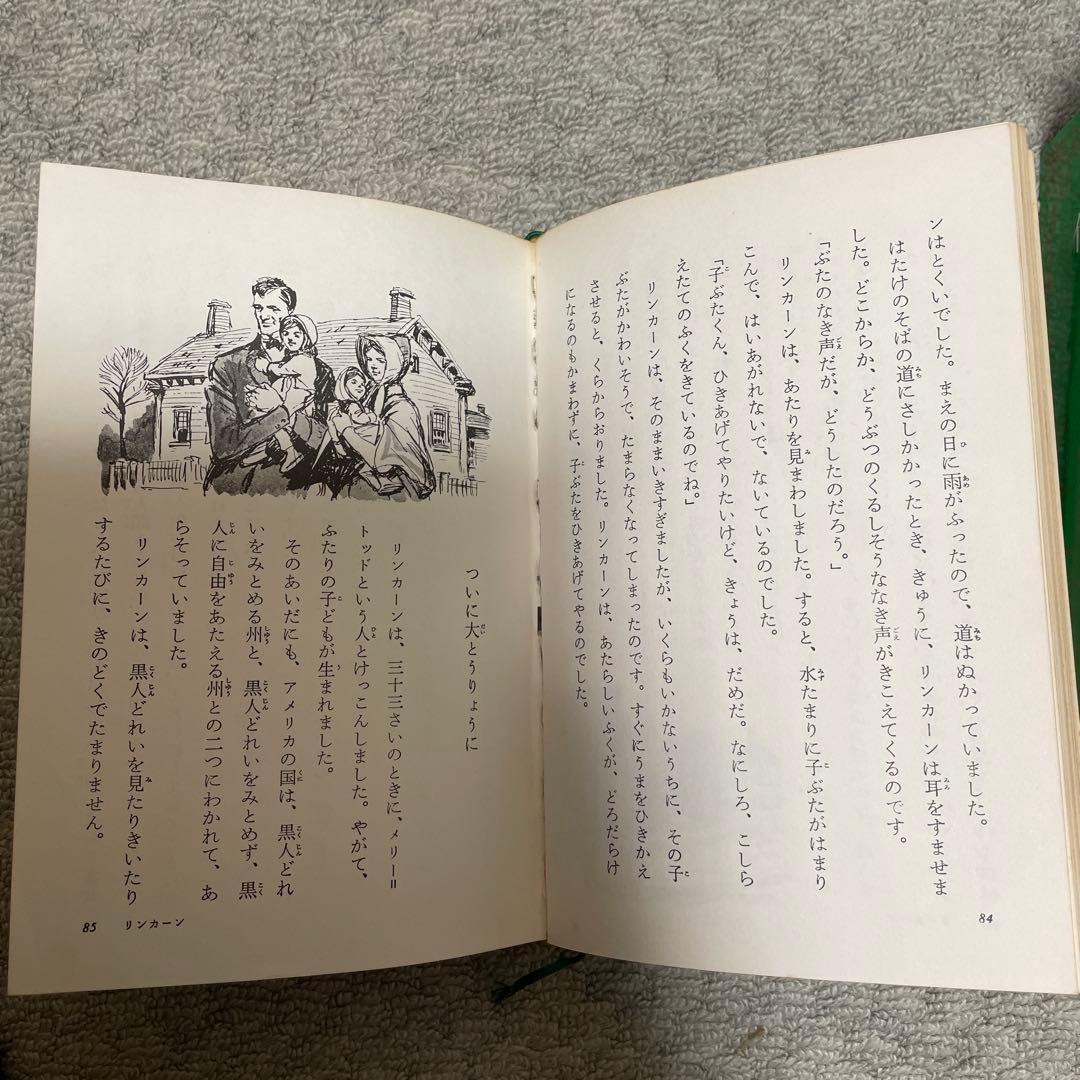 ンはとくいでした。まえの日に雨がふったので、道はぬかっていました。
はたけのそばの道にさしかかったとき、きゅうに、リンカーンは耳をすませま
した。どこからか、どうぶつのくるしそうななき声がきこえてくるのです。
「ぶたのなき声だが、どうしたのだろう。」
リンカーンは、あたりを見まわしました。すると、水たまりに子ぶたがはまり
こんで、はいあがれないで、ないているのでした。
「子ぶたくん、ひきあげてやりたいけど、きょうは、だめだ。なにしろ、こしら
えたてのふくをきているのでね。」
リンカーンは、そのままいきすぎましたが、いくらもいかないうちに、その子
ぶたがかわいそうで、たまらなくなってしまったのです。すぐにうまをひきかえ
させると、くらからおりました。リンカーンは、あたらしいふくが、どろだらけ
になるのもかまわずに、子ぶたをひきあげてやるのでした。
84
ついに大とうりょうに
リンカーンは、三十三さいのときに、メリー＝
トッドという人とけっこんしました。やがて、
ふたりの子どもが生まれました。
そのあいだにも、アメリカの国は、黒人どれ
いをみとめる州と、黒人どれいをみとめず、黒
人に自由をあたえる州との二つにわかれて、あ
らそっていました。
リンカーンは、黒人どれいを見たりきいたり
するたびに、きのどくでたまりません。
85 リンカーン